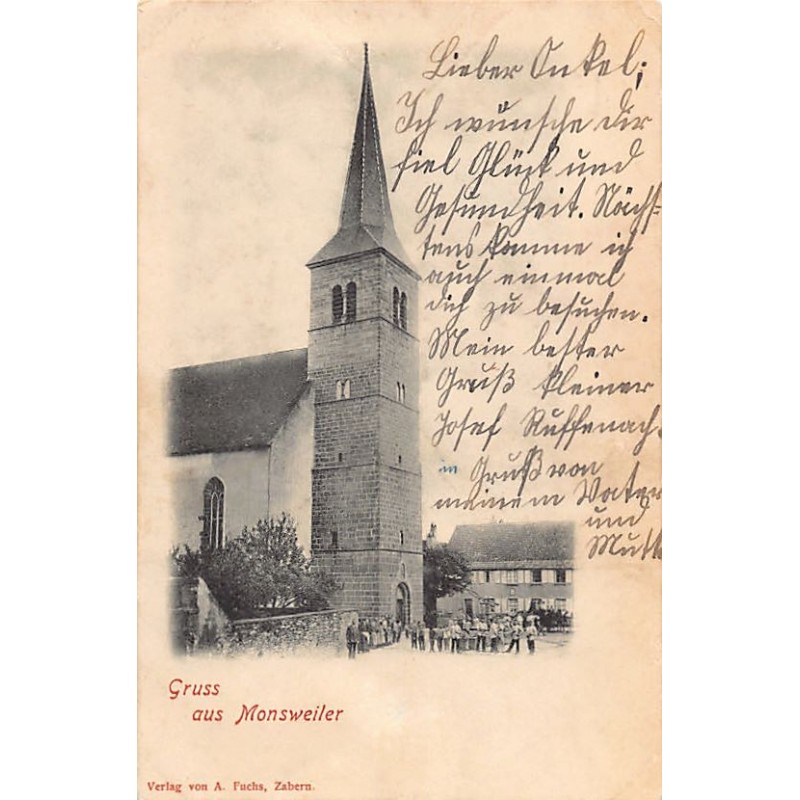 Lieber Onkel;
Ich wünsche dir
fiel Glück und
Gesundheit. Nächs-
tens komme ich
auch einmal
dich zu besuchen.
Mein bester
Gruß kleiner
Josef Ruffenach.
Gruß von
meinem Vater
und
Mutt
Gruss
aus Monsweiler
Verlag von A. Fuchs, Zabern.